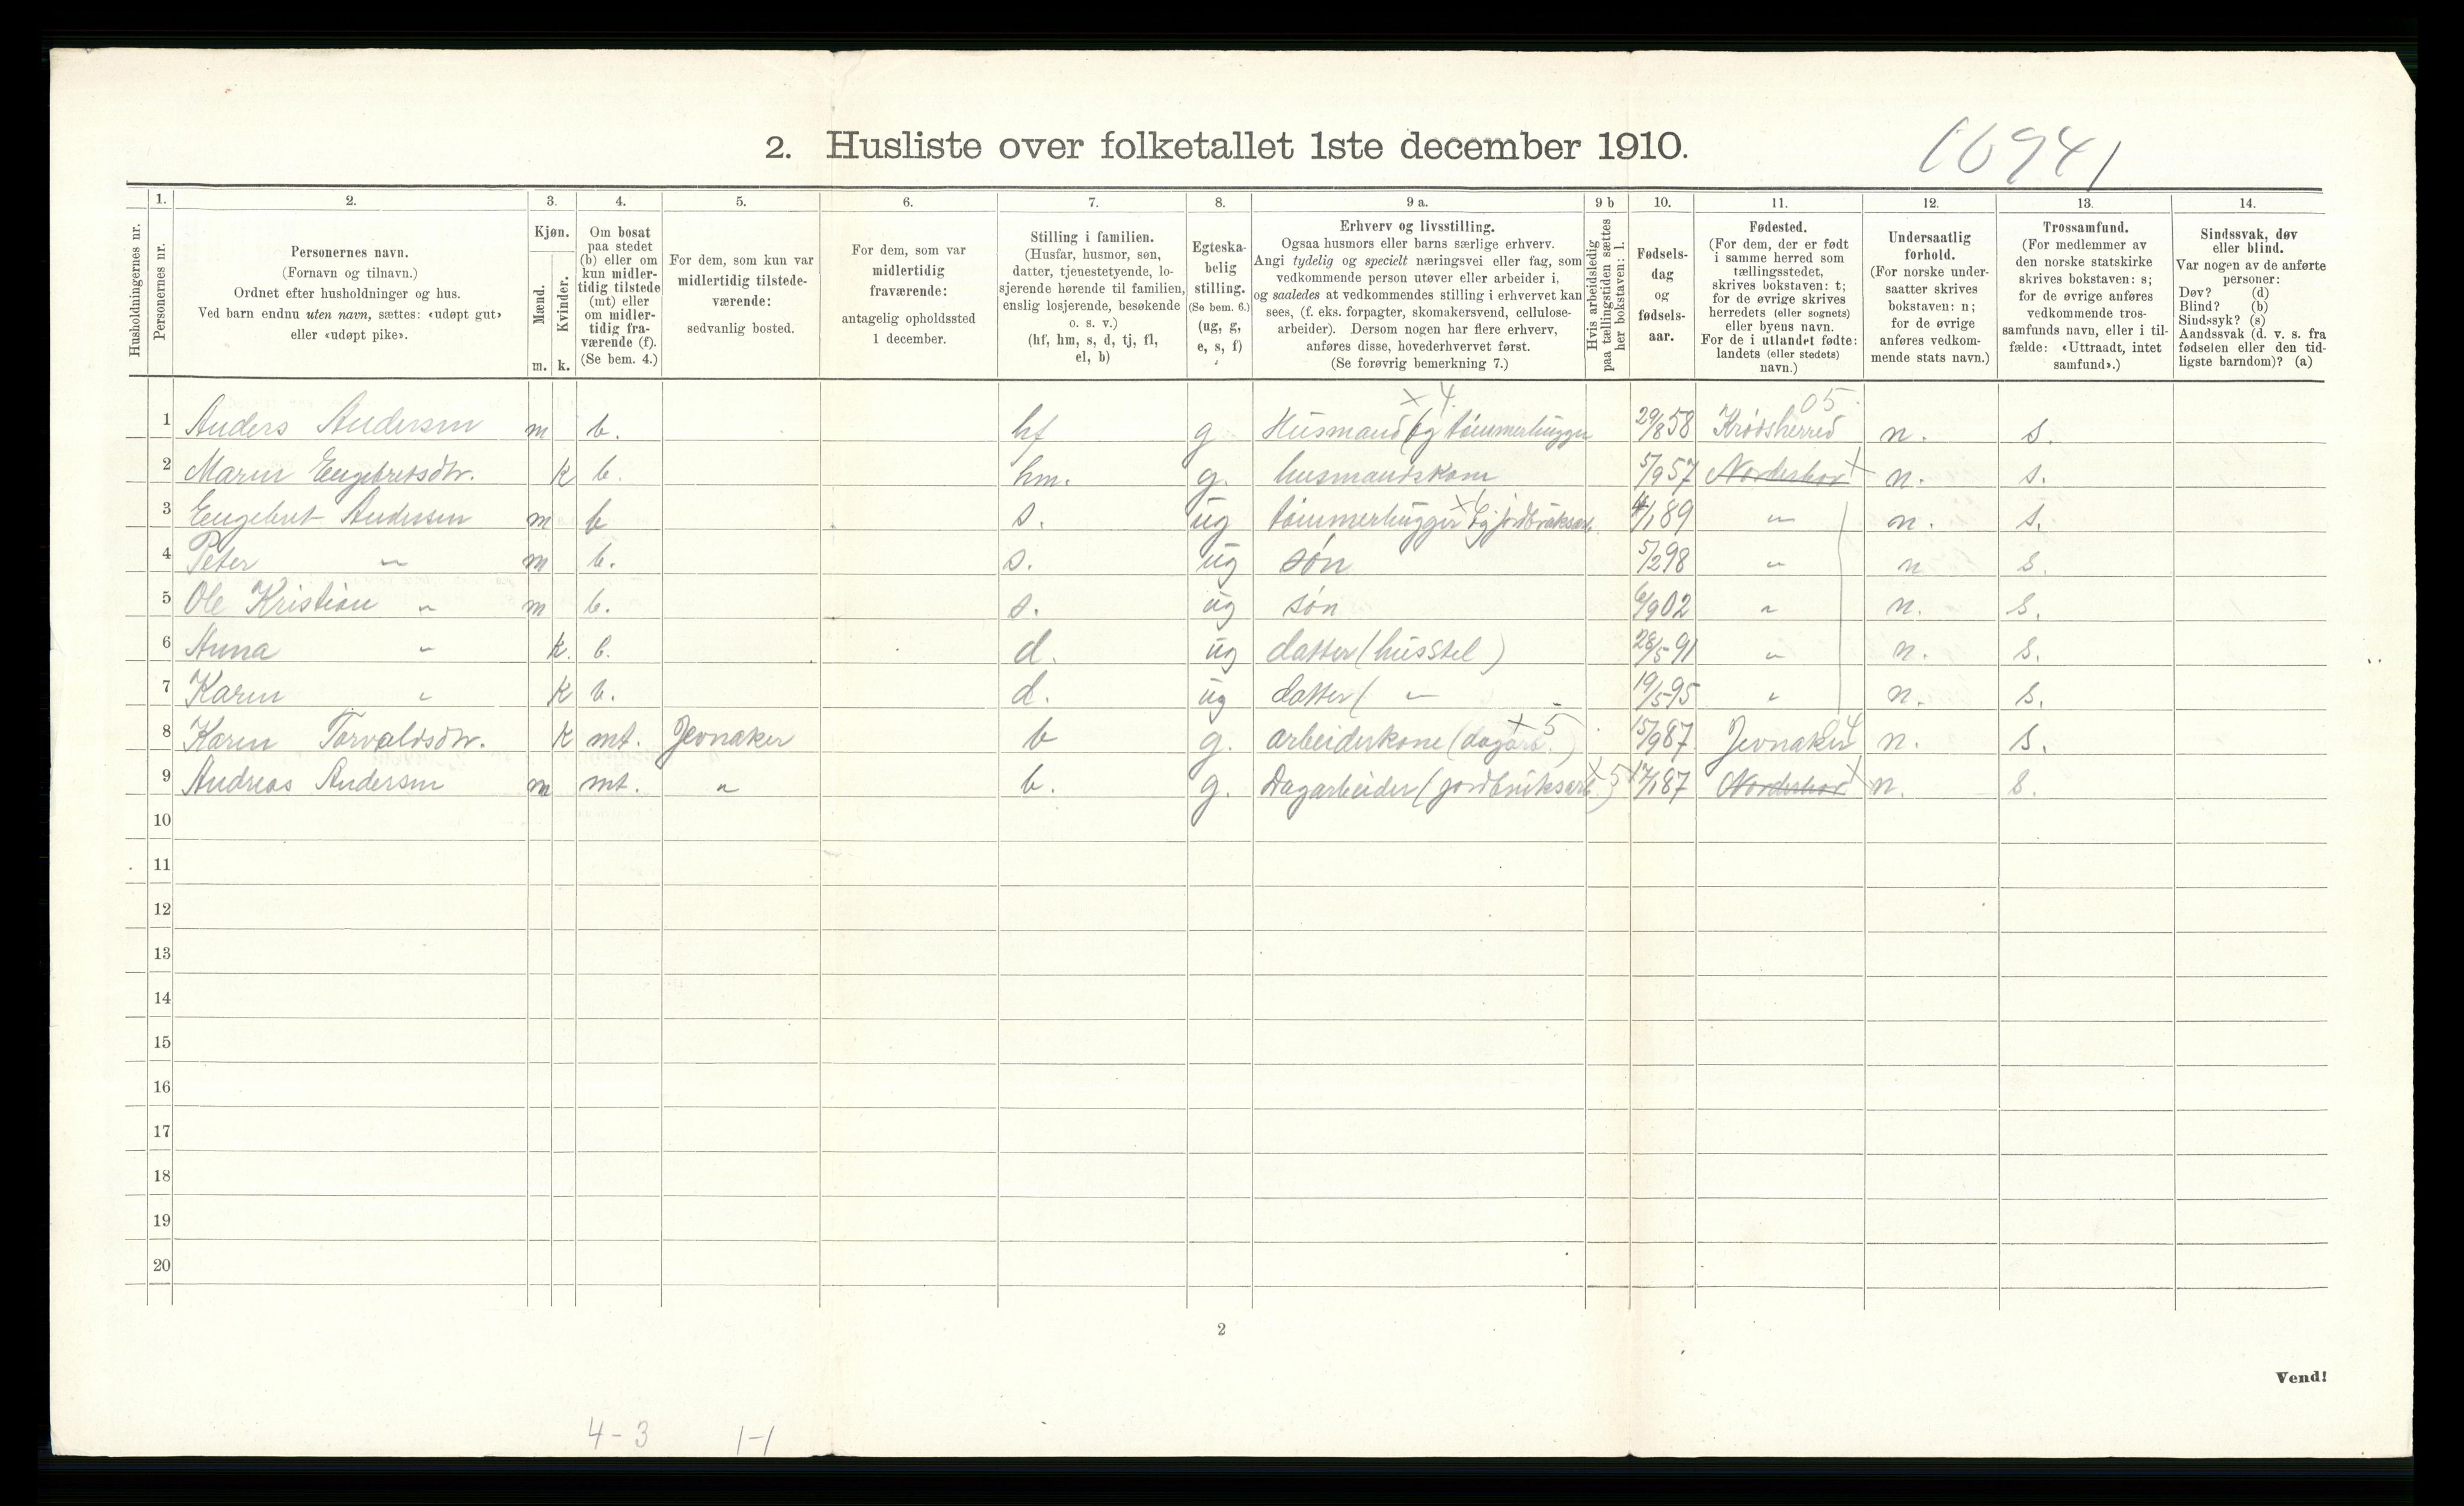 2. Husliste over folketallet 1ste december 1910.
16941
Husholdningernes nr.
1.
Personernes nr.
2.
Personernes navn.
(Fornavn og tilnavn.)
Ordnet efter husholdninger og hus.
Ved barn endnu uten navn, sættes: «udøpt gut»
eller «udøpt pike».
3.
Kjøn.
Mænd.
Kvinder.
m. k.
4.
Om bosat
paa stedet
(b) eller om
kun midler-
tidig tilstede
(mt) eller
om midler-
tidig fra-
værende (f).
(Se bem. 4.)
5.
For dem, som kun var
midlertidig tilstede-
værende:
sedvanlig bosted.
6.
For dem, som var
midlertidig
fraværende:
antagelig opholdssted
1 december.
7.
Stilling i familien.
(Husfar, husmor, søn,
datter, tjenestetyende, lo-
sjerende hørende til familien,
enslig losjerende, besøkende
o. s. v.)
(hf, hm, s, d, tj, fl,
el, b)
8.
Egteska-
belig
stilling.
(Se bem. 6.)
(ug, g,
e, s, f)
9 a.
Erhverv og livsstilling.
Ogsaa husmors eller barns særlige erhverv.
Angi tydelig og specielt næringsvei eller fag, som
vedkommende person utøver eller arbeider i,
og saaledes at vedkommendes stilling i erhvervet kan
sees, (f. eks. forpagter, skomakersvend, cellulose-
arbeider). Dersom nogen har flere erhverv,
anføres disse, hovederhvervet først.
(Se forøvrig bemerkning 7.)
9 b
Hvis arbeidsledig
paa tællingstiden sættes
her bokstaven: l.
10.
Fødsels-
dag
og
fødsels-
aar.
11.
Fødested.
(For dem, der er født
i samme herred som
tællingsstedet,
skrives bokstaven: t;
for de øvrige skrives
herredets (eller sognets)
eller byens navn.
For de i utlandet fødte:
landets (eller stedets)
navn.)
12.
Undersaatlig
forhold.
(For norske under-
saatter skrives
bokstaven: n;
for de øvrige
anføres vedkom-
mende stats navn.)
13.
Trossamfund.
(For medlemmer av
den norske statskirke
skrives bokstaven: s;
for de øvrige anføres
vedkommende tros-
samfunds navn, eller i til-
fælde: «Uttraadt, intet
samfund».)
14.
Sindssvak, døv
eller blind.
Var nogen av de anførte
personer:
Døv? (d)
Blind? (b)
Sindssyk? (s)
Aandssvak (d. v. s. fra
fødselen eller den tid-
ligste barndom)? (a)
x 4. 05
1 Anders Andersen m b. hf g Husmand og tømmerhugger 29/8 58 Krødsherred n. s.
2 Maren Engebretsdtr. k b. hm. g. husmandskone 5/9 57 Norderhov x n. s.
3 Engebret Andersen m b s. ug tømmerhugger x og jordbruksarb. 4/1 89 " n. s.
4 Peter " m b. s. ug søn 5/2 98 " n s.
5 Ole Kristian " m b. s. ug søn 6/9 02 " n. s.
6 Anna " k. b. d. ug datter (husstel) 28/5 91 " n. s.
7 Karen " k b. d. ug datter ( " 19/5 95 " n. s.
8 Karen Torvaldsdtr. k mt. Jevnaker b g. arbeiderkone (dagarb.) x 5 15/9 87 Jevnaker 4 n. s.
9 Andreas Andersen m mt. " b. g. Dagarbeider (jordbruksarb.) x 5 17/1 87 Norderhov x n. s.
10
11
12
13
14
15
16
17
18
19
20
2
Vend!
4 - 3 1-1